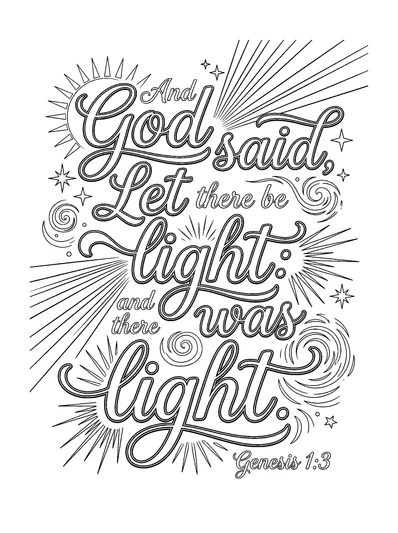 And
God said,
Let there be
light:
and there was
light.
Genesis 1:3